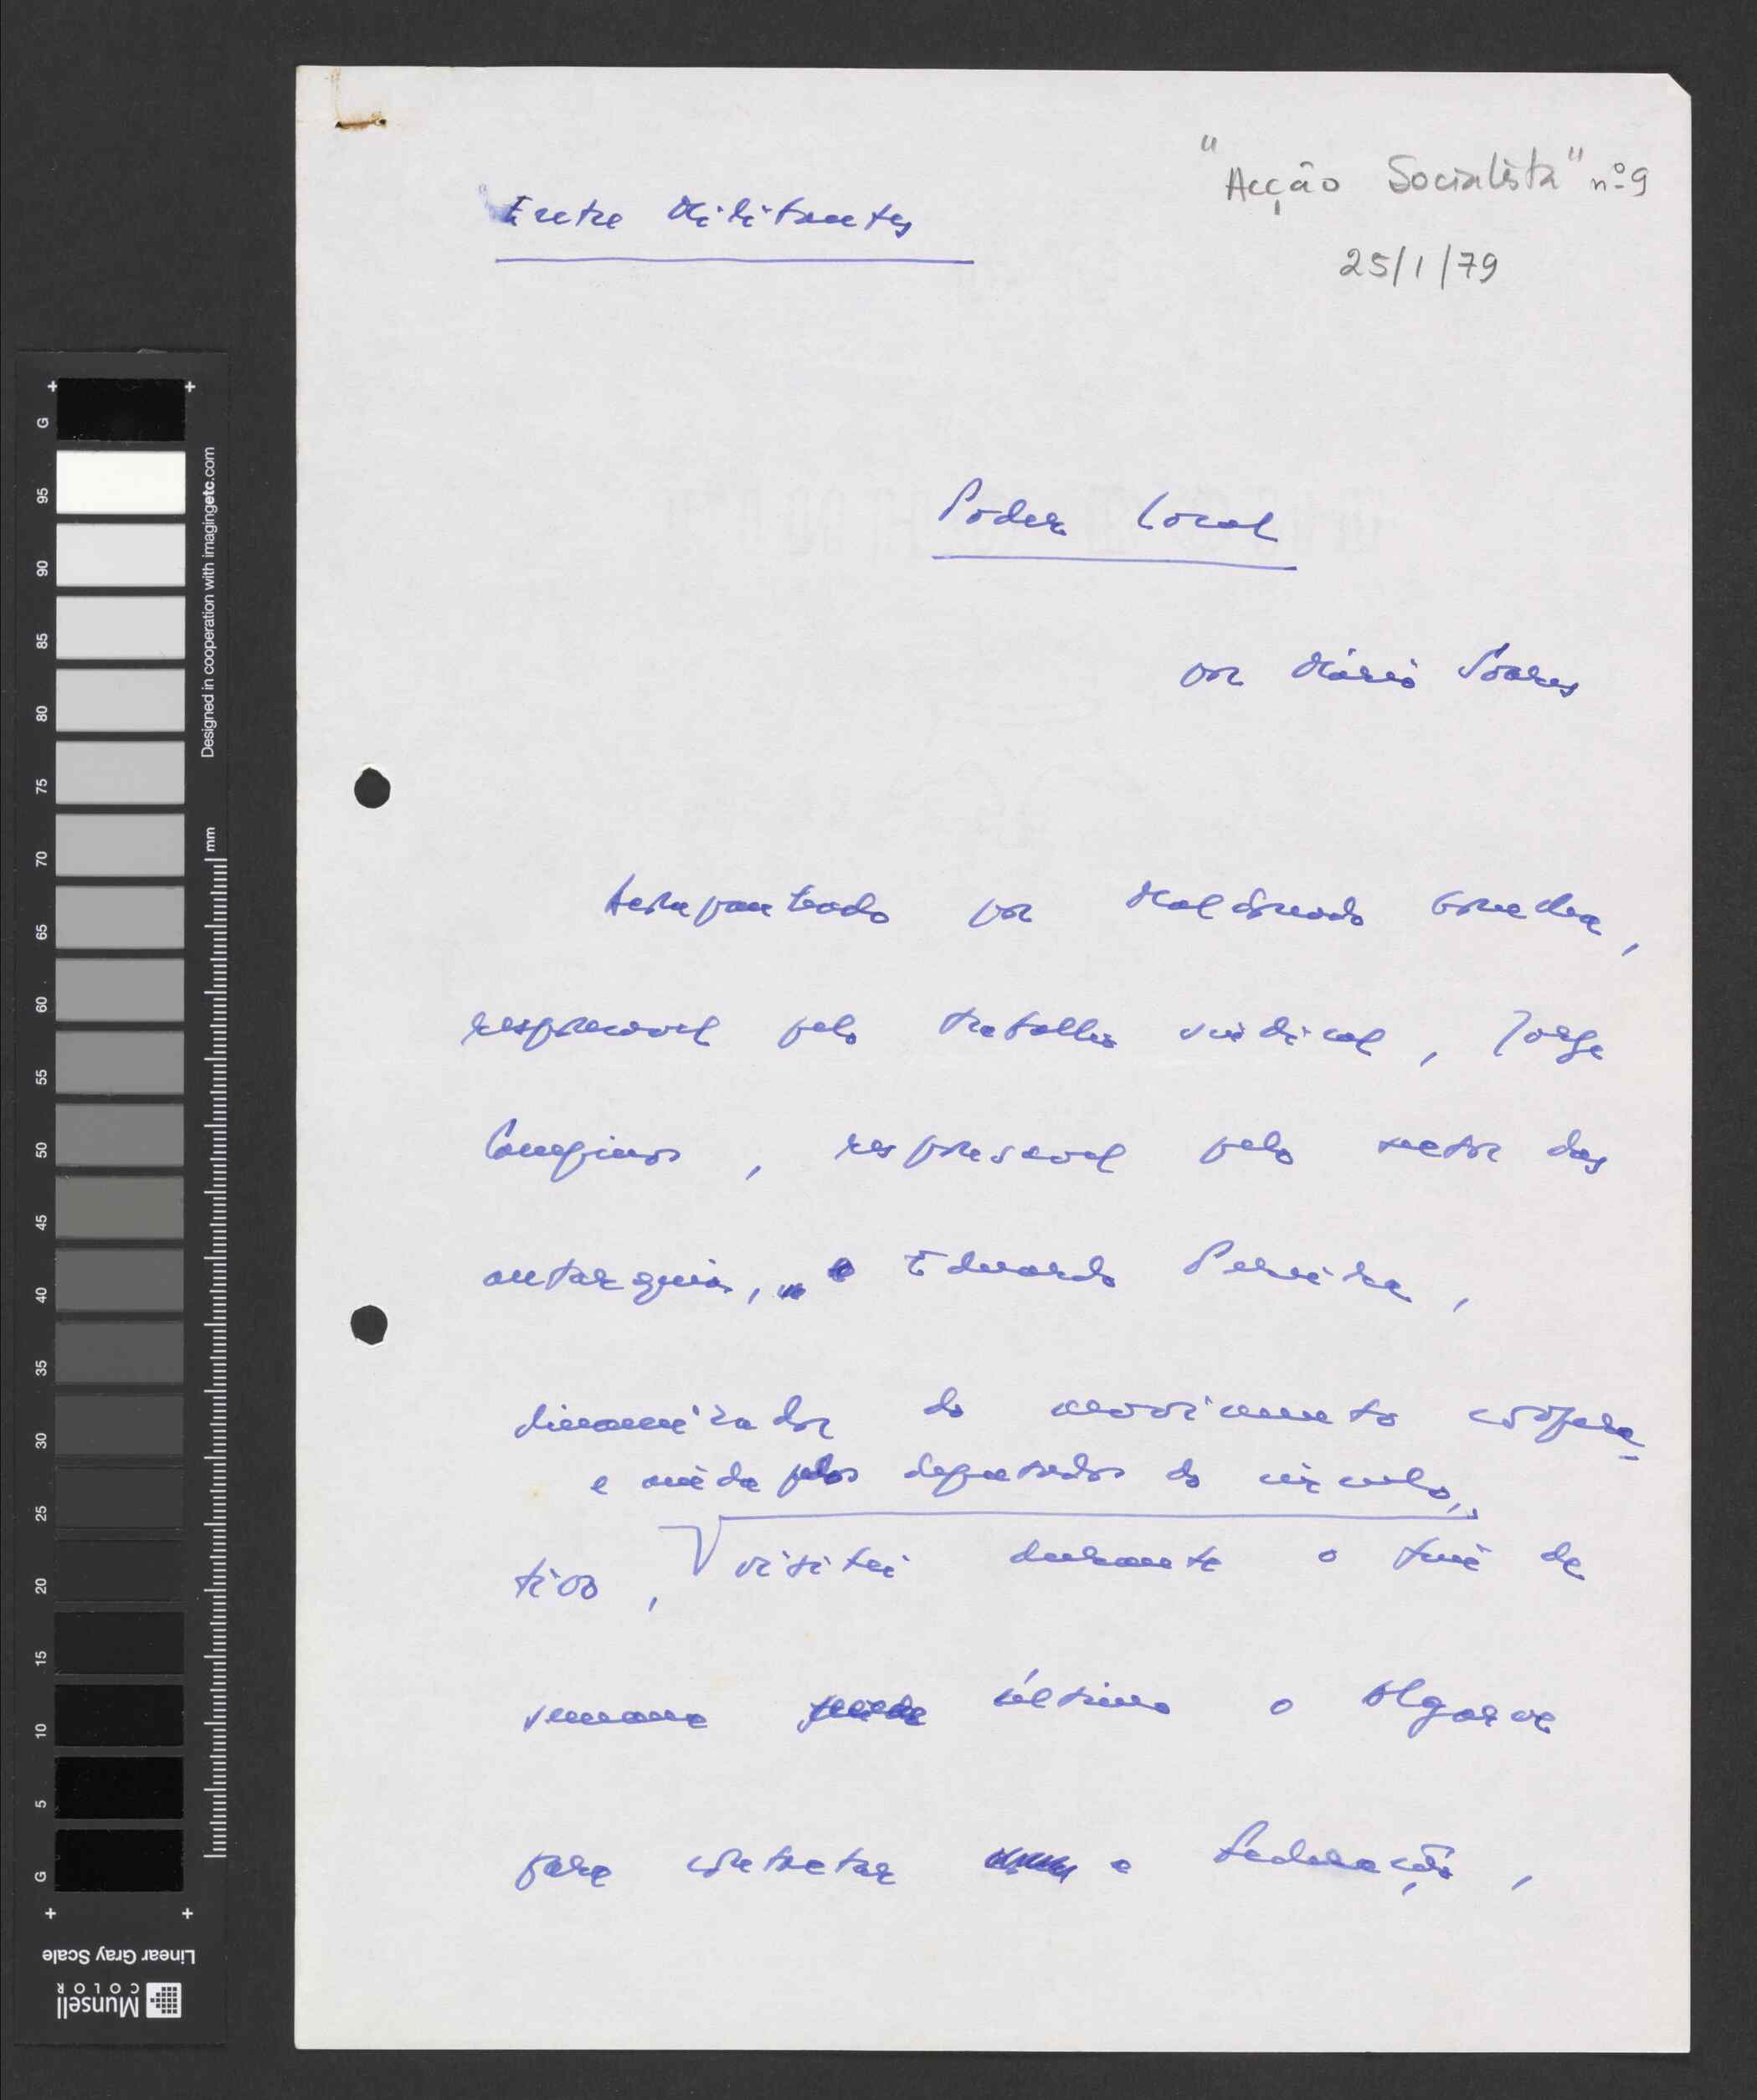 "Acção Socialista" nº 9
25/1/79
Entre Militantes
Poder Local
por Mário Soares
Acompanhado por Maldonado Gonelha,
responsavel pelo trabalho sindical, Jorge
Campinos, responsavel pelo sector das
autarquias, e Eduardo Pereira,
dinamizador do movimento coopera-
e ainda pelos deputados do circulo,
tivo, visitei durante o fim de
semana último o Algarve
para contactar a Federação,
G
95
90
85
80
75
70
65
60
55
50
45
40
35
30
25
20
15
10
5
G
Designed in cooperation with imagingetc.com
mm
Linear Gray Scale
Munsell
COLOR